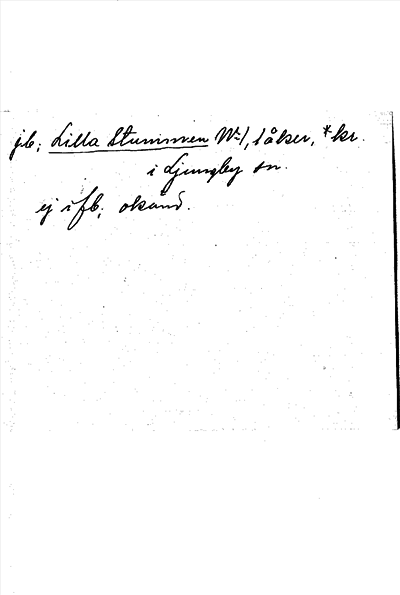 jb; Lilla Stummven No 1, 1 åker, *kr.
i Ljungby sn.
ej i fb; okänd.